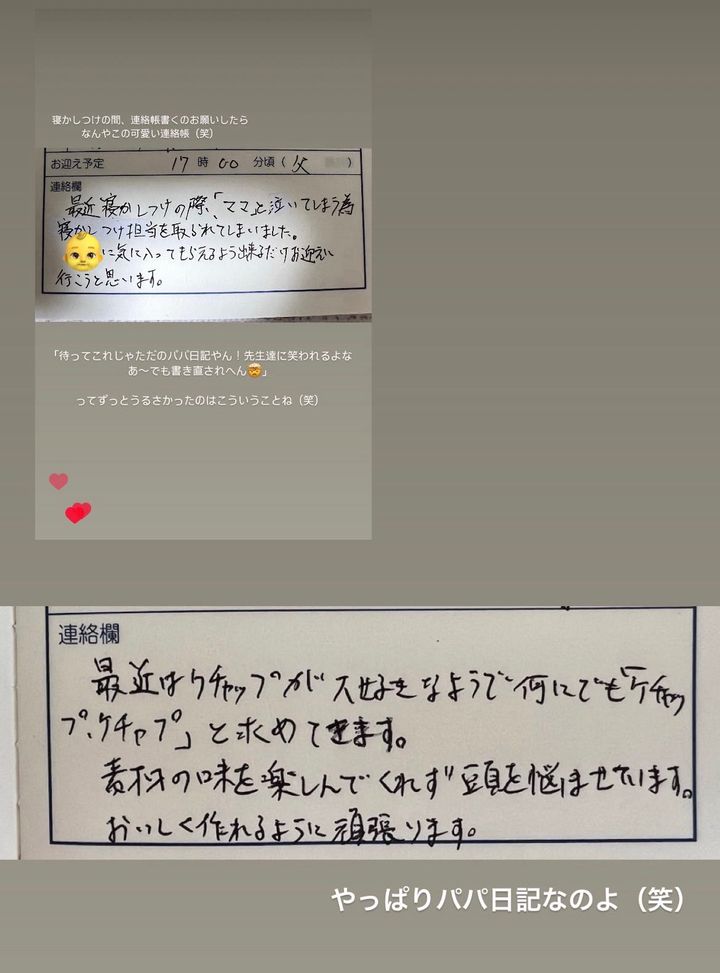 寝かしつけの間、連絡帳書くのお願いしたら
なんやこの可愛い連絡帳（笑）
お迎え予定 17 時 00 分頃（父 ）
連絡欄
最近寝かしつけの際、「ママ」と泣いてしまう為
寝かしつけ担当を取られてしまいました。
に気に入ってもらえるよう出来るだけお迎えに
行こうと思います。
「待ってこれじゃただのパパ日記やん！先生達に笑われるよな
あ〜でも書き直されへん🤯」
ってずっとうるさかったのはこういうことね（笑）
連絡欄
最近はケチャップが大好きなようで何にでも「ケチャッ
プ、ケチャプ」と求めてきます。
素材の味を楽しんでくれず頭を悩ませています。
おいしく作れるように頑張ります。
やっぱりパパ日記なのよ（笑）